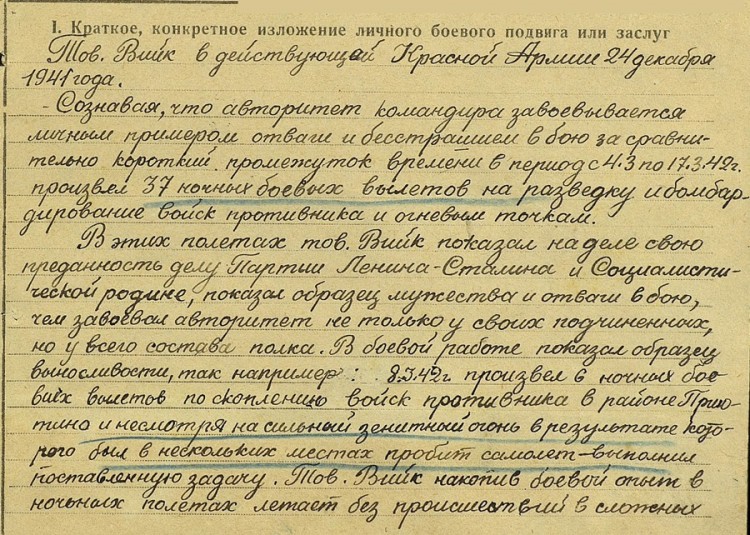 I. Краткое, конкретное изложение личного боевого подвига или заслуг
Тов. Вийк в действующей Красной Армии 24 декабря
1941 года.
- Сознавая, что авторитет командира завоевывается
личным примером отваги и бесстрашием в бою за сравни-
тельно короткий промежуток времени в период с 4.3 по 17.3.42г.
произвел 37 ночных боевых вылетов на разведку и бомбар-
дирование войск противника и огневым точкам.
В этих полетах тов. Вийк показал на деле свою
преданность делу Партии Ленина-Сталина и Социалисти-
ческой родине, показал образец мужества и отваги в бою,
чем завоевал авторитет не только у своих подчиненных,
но у всего состава полка. В боевой работе показал образец
выносливости, так например: 8.3.42г. произвел 6 ночных бое
вых вылетов по скоплению войск противника в районе Прию-
тино и несмотря на сильный зенитный огонь в результате кото-
рого был в нескольких местах пробит самолет-выполнил
поставленную задачу. Тов. Вийк накопив боевой опыт в
ночных полетах летает без происшествий в сложных